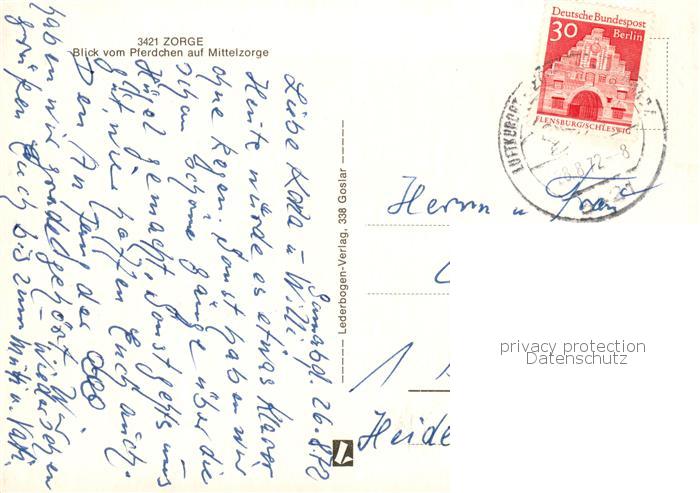 3421 ZORGE
Blick vom Pferdchen auf Mittelzorge
Sonnabd. 26.8.72
Liebe Käta u. Willi
Heute würde es etwas klarer
ohne Regen. Sonst haben wir
schon schöne Gänge über die
Hügel gemacht. Sonst gehts uns
gut, wie hoffen Euch auch.
Den Anfang der
haben wir grade gehört. Wir
grüßen Euch bis zum Wiedersehen
Mutti u. Vati.
Lederbogen-Verlag, 338 Goslar
Deutsche Bundespost
30 Berlin
FLENSBURG/SCHLESWIG
LUFTKURORT
8.72-8
Herrn u Frau
1
Heide
privacy protection
Datenschutz